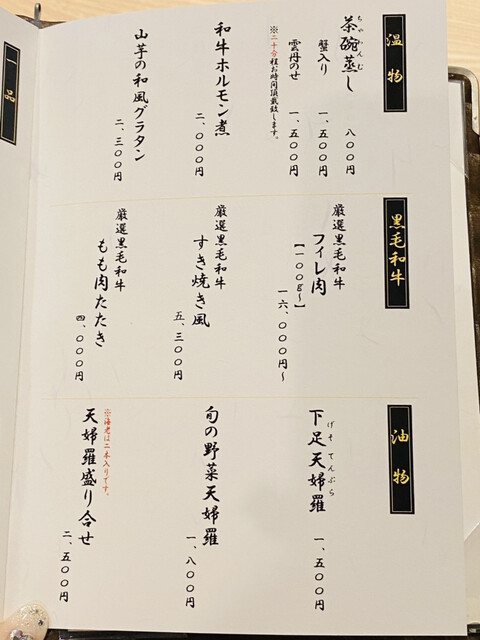 温物
茶碗蒸し
ちゃわんむ
八〇〇円
蟹入り
一、五〇〇円
雲丹のせ
一、五〇〇円
※二十分程お時間頂戴致します。
和牛ホルモン煮
二、〇〇〇円
山芋の和風グラタン
二、三〇〇円
黒毛和牛
厳選黒毛和牛
フィレ肉
【一〇〇g〜】
一六、〇〇〇円〜
厳選黒毛和牛
すき焼き風
五、三〇〇円
厳選黒毛和牛
もも肉たたき
四、〇〇〇円
油物
下足天婦羅
げそてんぷら
一、五〇〇円
旬の野菜天婦羅
一、八〇〇円
※海老は二本入りです。
天婦羅盛り合せ
二、五〇〇円
一品